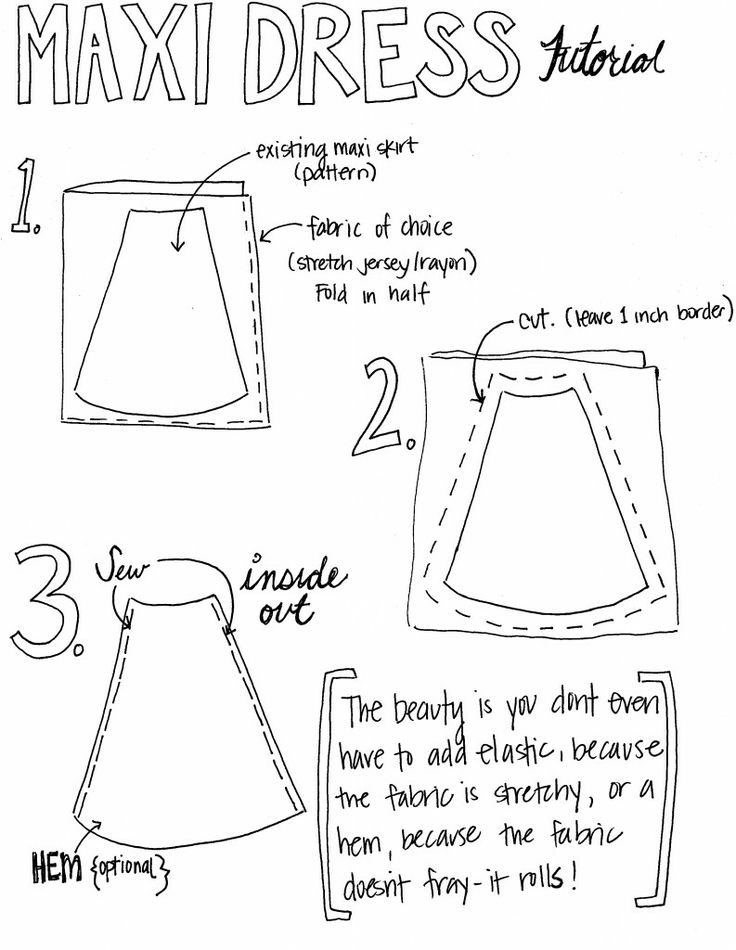 MAXI DRESS Tutorial
1.
existing maxi skirt
(pattern)
fabric of choice
(stretch jersey/rayon)
Fold in half
cut. (leave 1 inch border)
2.
3.
Sew
inside
out
HEM {optional}
The beauty is you dont even
have to add elastic, because
the fabric is stretchy, or a
hem, because the fabric
doesn't fray-it rolls!